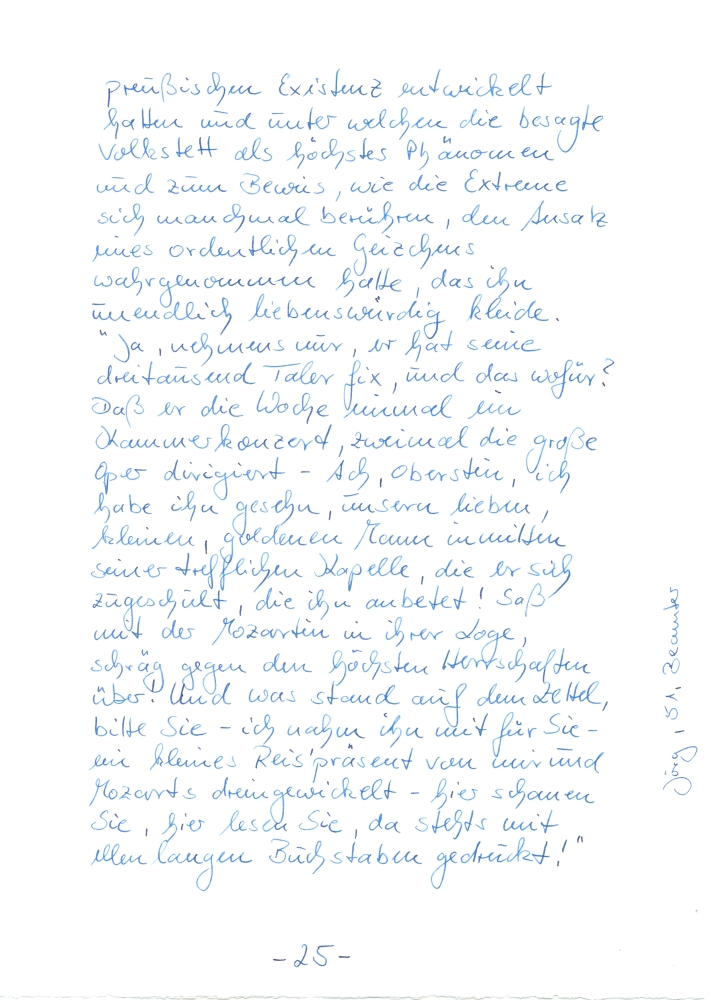 preußischen Existenz entwickelt
hatten und unter welchen die besagte
Volkstett als höchstes Phänomen
und zum Beweis, wie die Extreme
sich manchmal berühren, den Ansatz
eines ordentlichen Geizchens
wahrgenommen hatte, das ihn
unendlich liebenswürdig kleide.
"Ja, nehmens nur, er hat seine
dreitausend Taler fix, und das wofür?
Daß er die Woche einmal ein
Kammerkonzert, zweimal die große
Oper dirigiert - Ach, Oberstin, ich
habe ihn gesehn, unsern lieben,
kleinen, goldenen Mann inmitten
seiner trefflichen Kapelle, die er sich
zugeschult, die ihn anbetet! Saß
mit der Mozartin in ihrer Loge,
schräg gegen den höchsten Herrschaften
über! Und was stand auf dem Zettel,
bitte Sie - ich nahm ihn mit für Sie -
ein kleines Reis'präsent von mir und
Mozarts dreingewickelt - hier schauen
Sie, hier lesen Sie, da stehts mit
ellenlangen Buchstaben gedruckt!"
-25-
Jörg, 51, Beamter